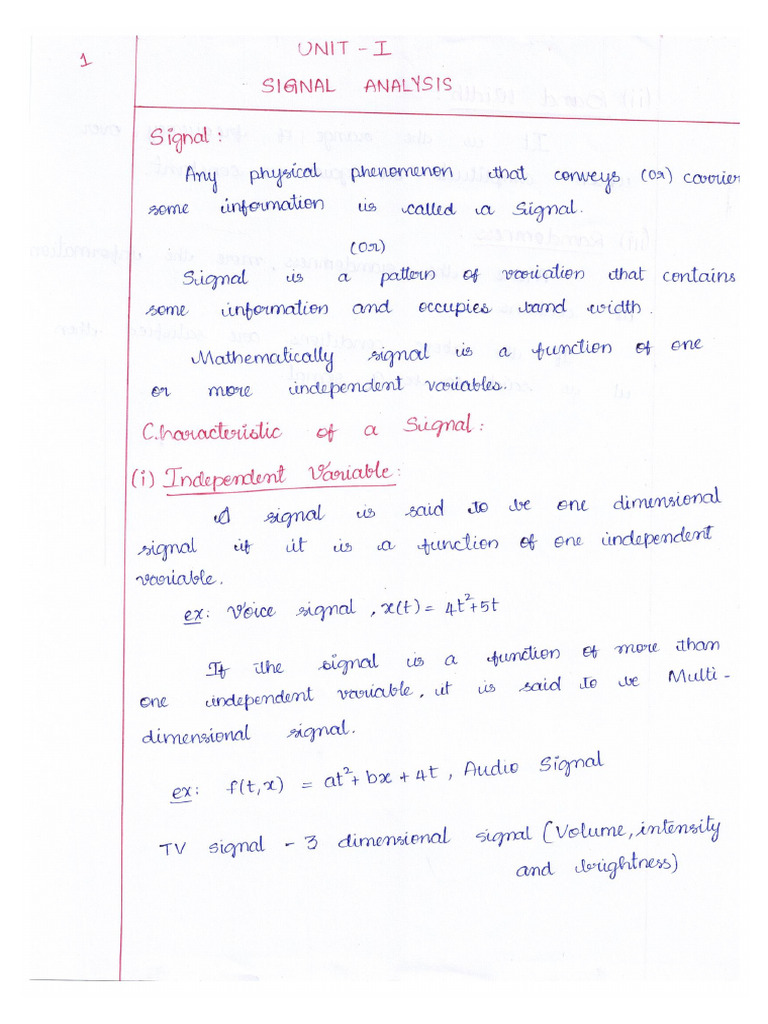 1
UNIT - I
SIGNAL ANALYSIS
Signal :
Any physical phenomenon that conveys (or) carrier
some information is called a Signal.
(or)
Signal is a pattern of variation that contains
some information and occupies band width.
Mathematically signal is a function of one
or more independent variables.
Characteristic of a Signal :
(i) Independent Variable :
A signal is said to be one dimensional
signal if it is a function of one independent
variable.
ex: Voice signal , x(t) = 4t²+5t
If the signal is a function of more than
one independent variable, it is said to be Multi -
dimensional signal.
ex: f(t,x) = at²+ bx + 4t , Audio Signal
TV signal - 3 dimensional signal (Volume, intensity
and brightness)